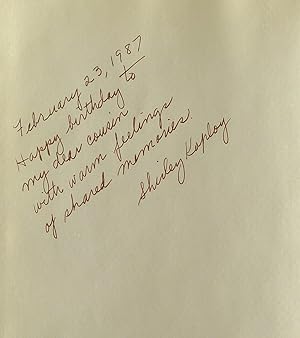 February 23, 1987
Happy birthday to
my dear cousin
with warm feelings
of shared memories.
Shirley Koploy